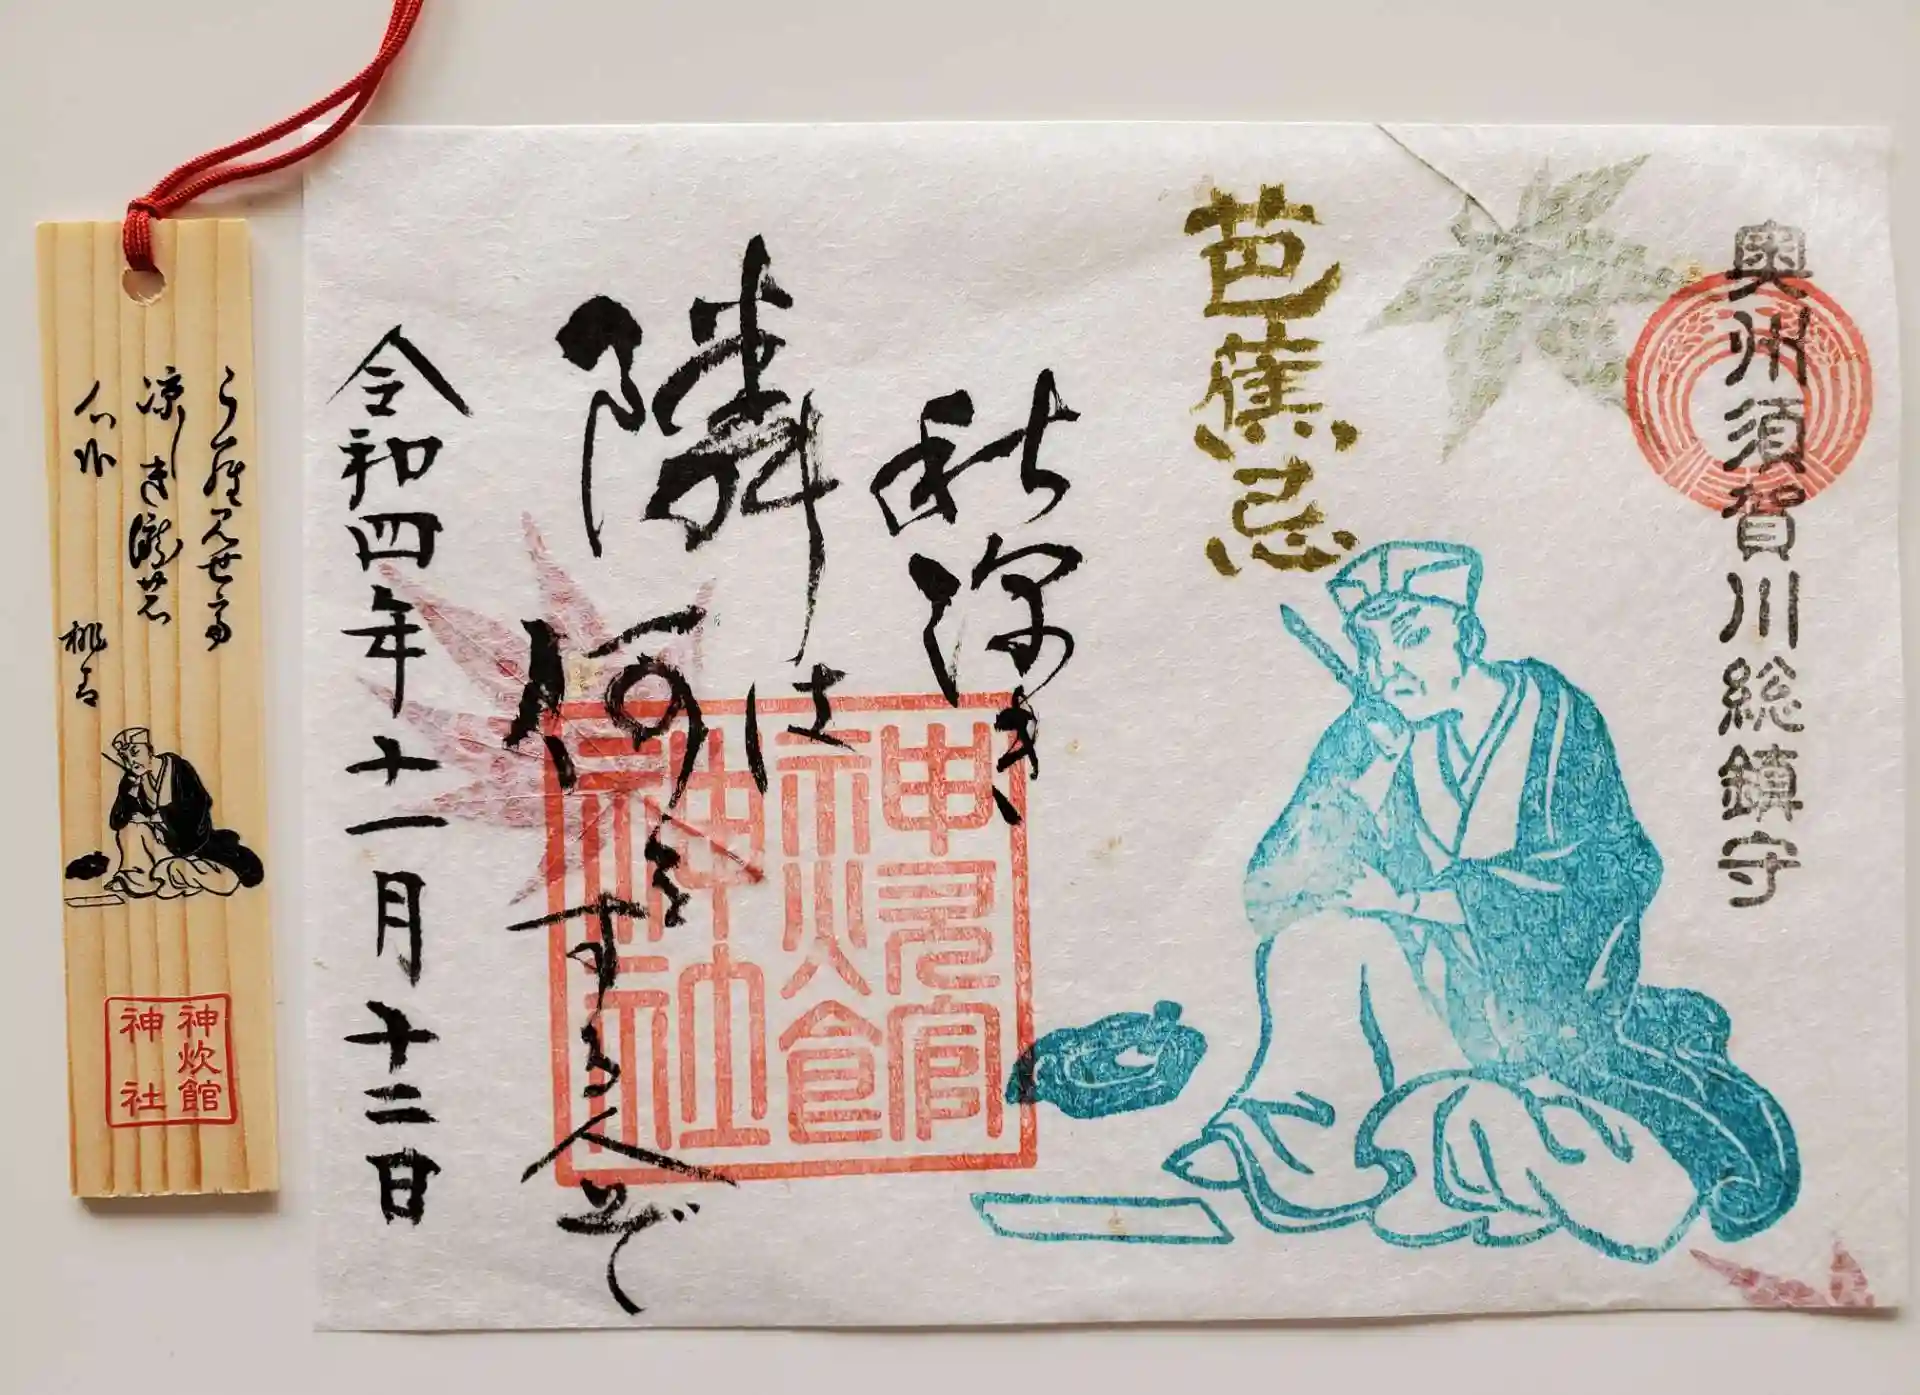 奥州須賀川総鎮守
芭蕉忌
秋深き
隣は
何をする人ぞ
令和四年十一月十二日
神炊館
神社
涼しき瀧の
心
桃青
神炊館
神社